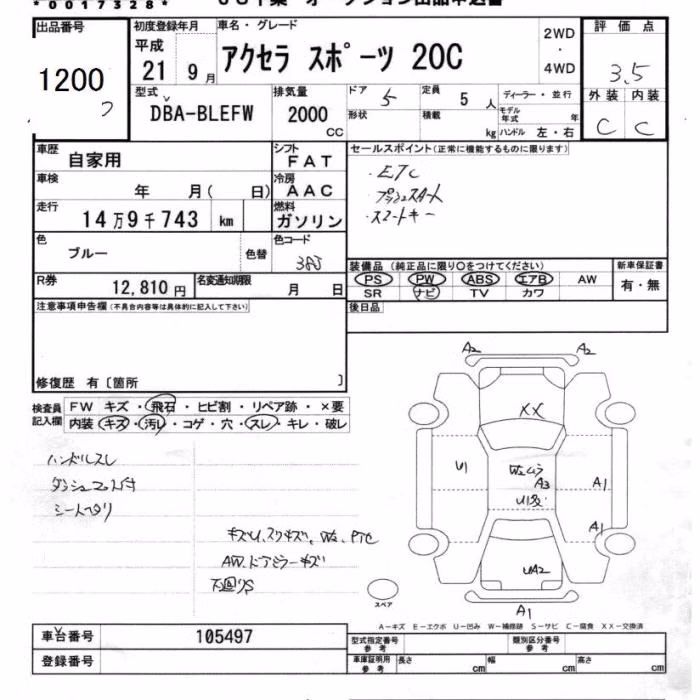 *0017328*
出品番号
1200
初度登録年月
平成
21 9月
車名・グレード
アクセラ スポーツ 20C
2WD
・
4WD
評価点
3.5
外装 内装
C C
型式
DBA-BLEFW
排気量
2000
CC
ドア
5
定員
5 人
ディーラー・並行
形状
積載
kg
モデル年式 年
ハンドル 左・右
車歴
自家用
シフト
FAT
セールスポイント(正常に機能するものに限ります)
・ETC
・プッシュスタート
・スマートキー
車検
年 月( 日)
冷房
AAC
走行
14万9千743 km
燃料
ガソリン
色
ブルー
色替
色コード
38J
装備品(純正品に限り○をつけてください)
PS PW ABS エアB AW
SR ナビ TV カワ
新車保証書
有・無
R券
12,810円
名変通知期限
月 日
後日品
注意事項申告欄(不具合内容等は具体的に記入して下さい)
修復歴 有〔箇所 〕
検査員記入欄
FW キズ・飛石・ヒビ割・リペア跡・×要
内装 キズ・汚レ・コゲ・穴・スレ・キレ・破レ
ハンドルスレ
シートヘタリ
AW、ドアミラーキズ
下廻りS
A2 A2
XX
U1
A3
A1
A1
UA2
A1
スペア
A-キズ E-エクボ U-凹み W-補修跡 S-サビ C-腐食 XX-交換済
車台番号
105497
登録番号
型式指定番号
参考
類別区分番号
参考
車庫証明用
参考
長さ cm
幅 cm
高さ cm